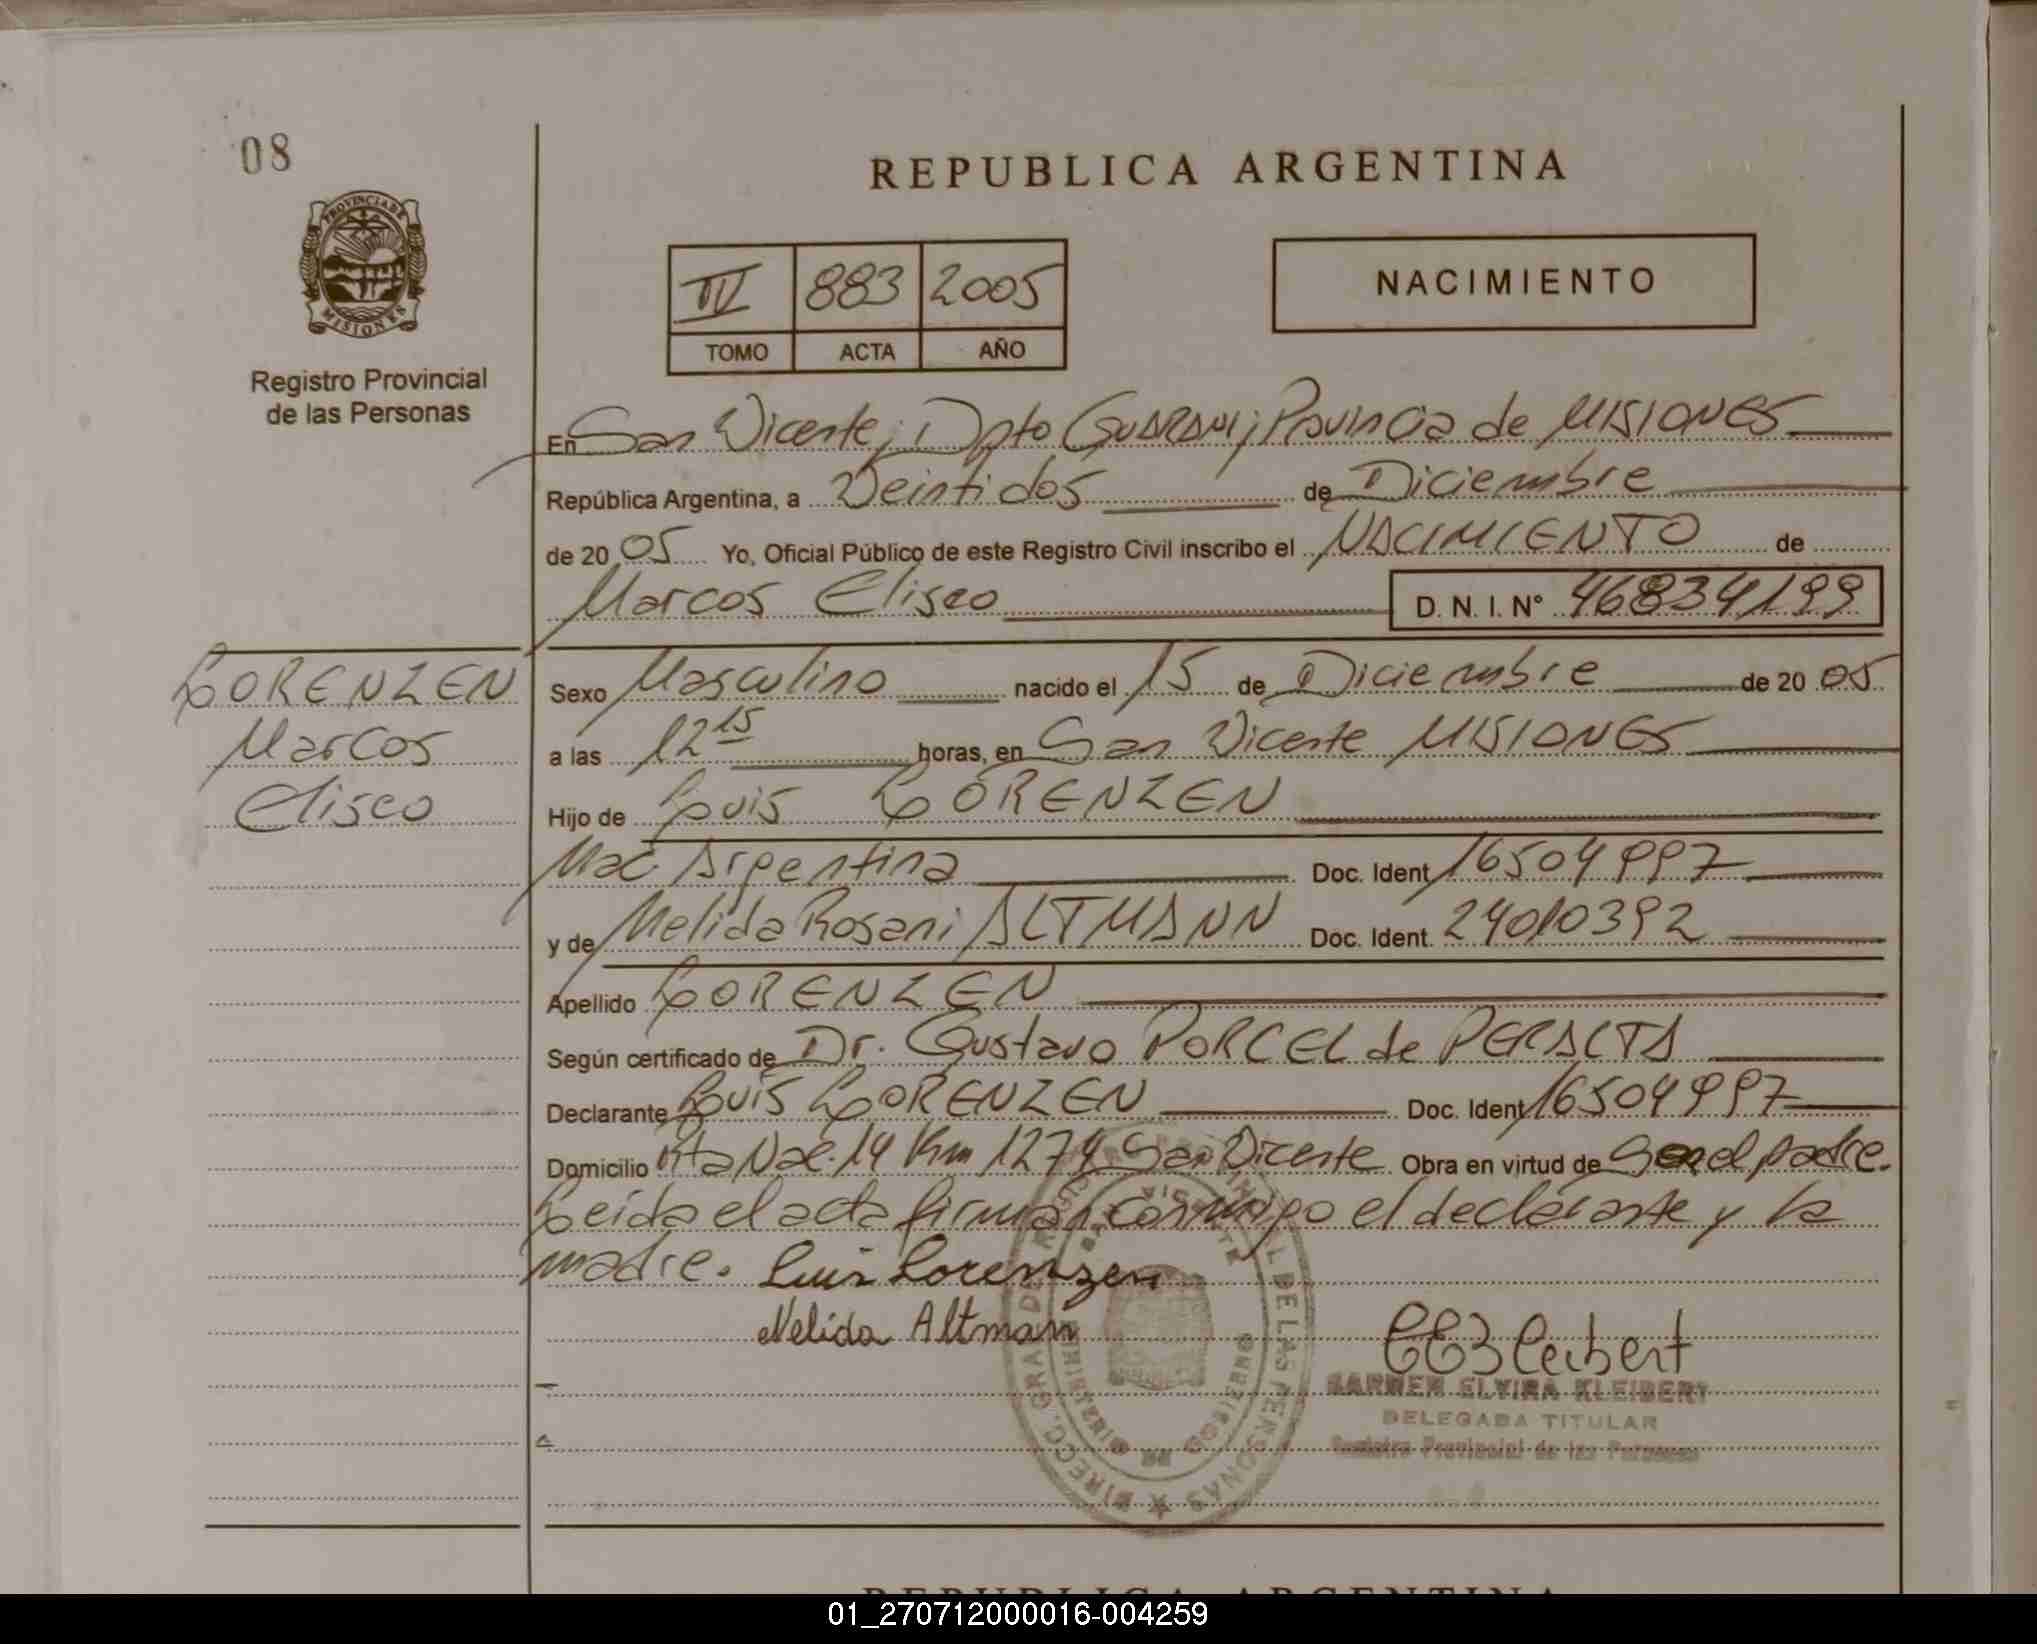 08
REPUBLICA ARGENTINA
PROVINCIA DE
MISIONES
Registro Provincial
de las Personas
IV 883 2005
TOMO ACTA AÑO
NACIMIENTO
En San Vicente, Dpto GUARANI, Provincia de MISIONES
República Argentina, a Veintidos de Diciembre
de 2005 Yo, Oficial Público de este Registro Civil inscribo el NACIMIENTO de
Marcos Eliseo D. N. I. N° 46834199
LORENZEN
Marcos
Eliseo
Sexo Masculino nacido el 15 de Diciembre de 2005
a las 12 15 horas, en San Vicente MISIONES
Hijo de Luis LORENZEN
Nac Argentina Doc. Ident 16504997
y de Nelida Rosani ALTMANN Doc. Ident. 24010392
Apellido LORENZEN
Según certificado de Dr. Gustavo PORCEL de PERALTA
Declarante Luis LORENZEN Doc. Ident 16504997
Domicilio Rta Nac. 14 Km 1274 San Vicente Obra en virtud de Ser el padre.
Leida el acta firman conmigo el declarante y la
madre. Luis Lorenzen
Nelida Altman
CARMEN ELVIRA KLEIBERT
DELEGADA TITULAR
Registro Provincial de las Personas
DIRECC. GRAL DE REGISTRO PROVINCIAL DE LAS PERSONAS
SAN VICENTE
MINISTERIO DE GOBIERNO
REPUBLICA ARGENTINA
01_270712000016-004259